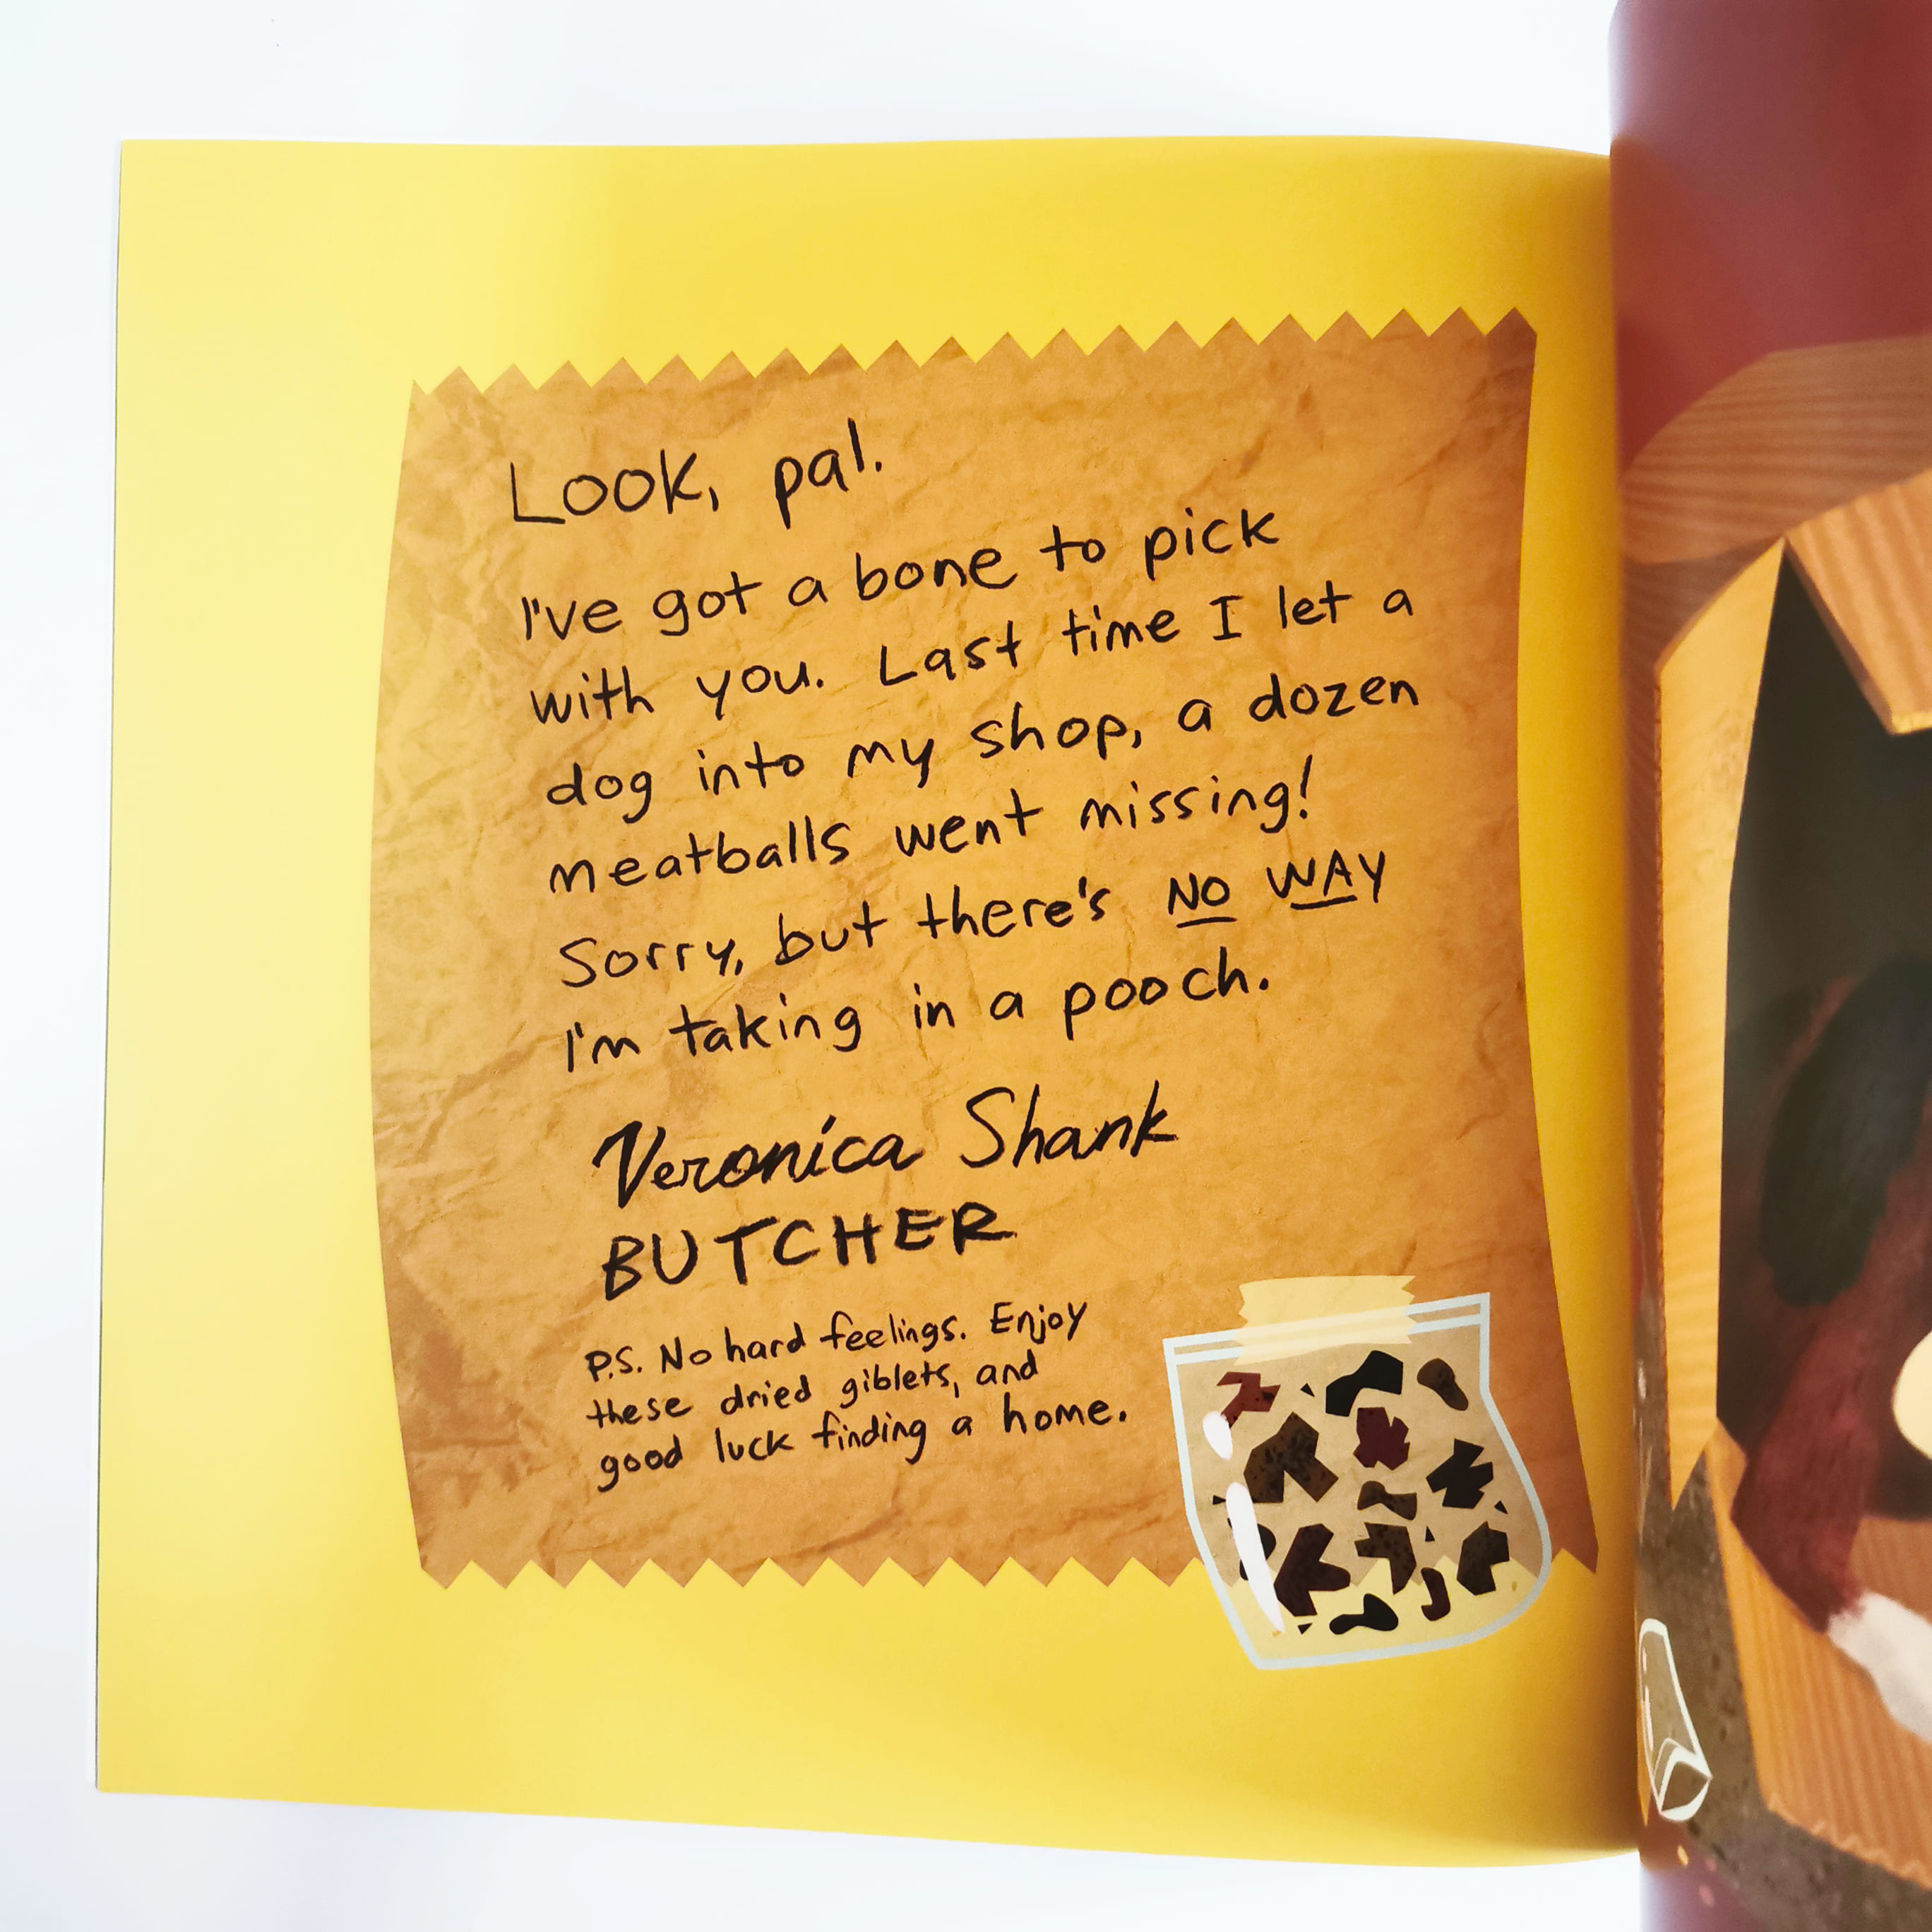 Look, pal.
I've got a bone to pick
with you. Last time I let a
dog into my shop, a dozen
meatballs went missing!
Sorry, but there's NO WAY
I'm taking in a pooch.
Veronica Shank
BUTCHER
P.S. No hard feelings. Enjoy
these dried giblets, and
good luck finding a home.